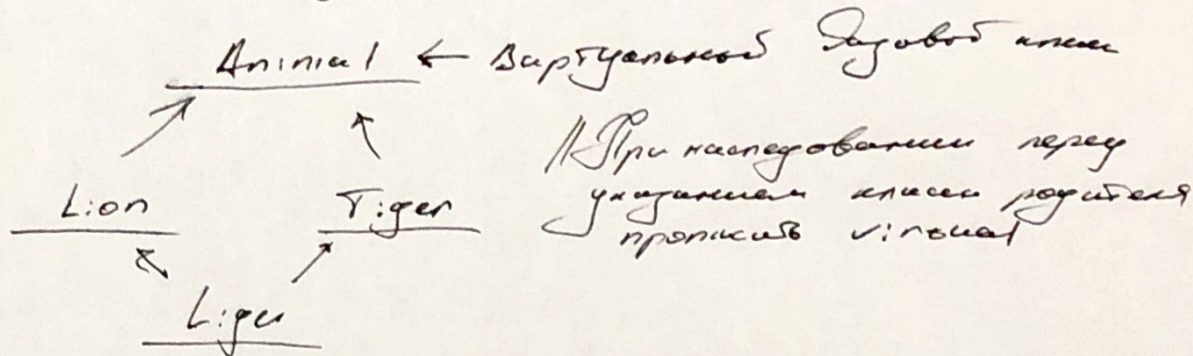 Animal ← Виртуальный базовый класс
//При наследовании перед
Lion Tiger указанием класса родителя
прописать virtual
Liger